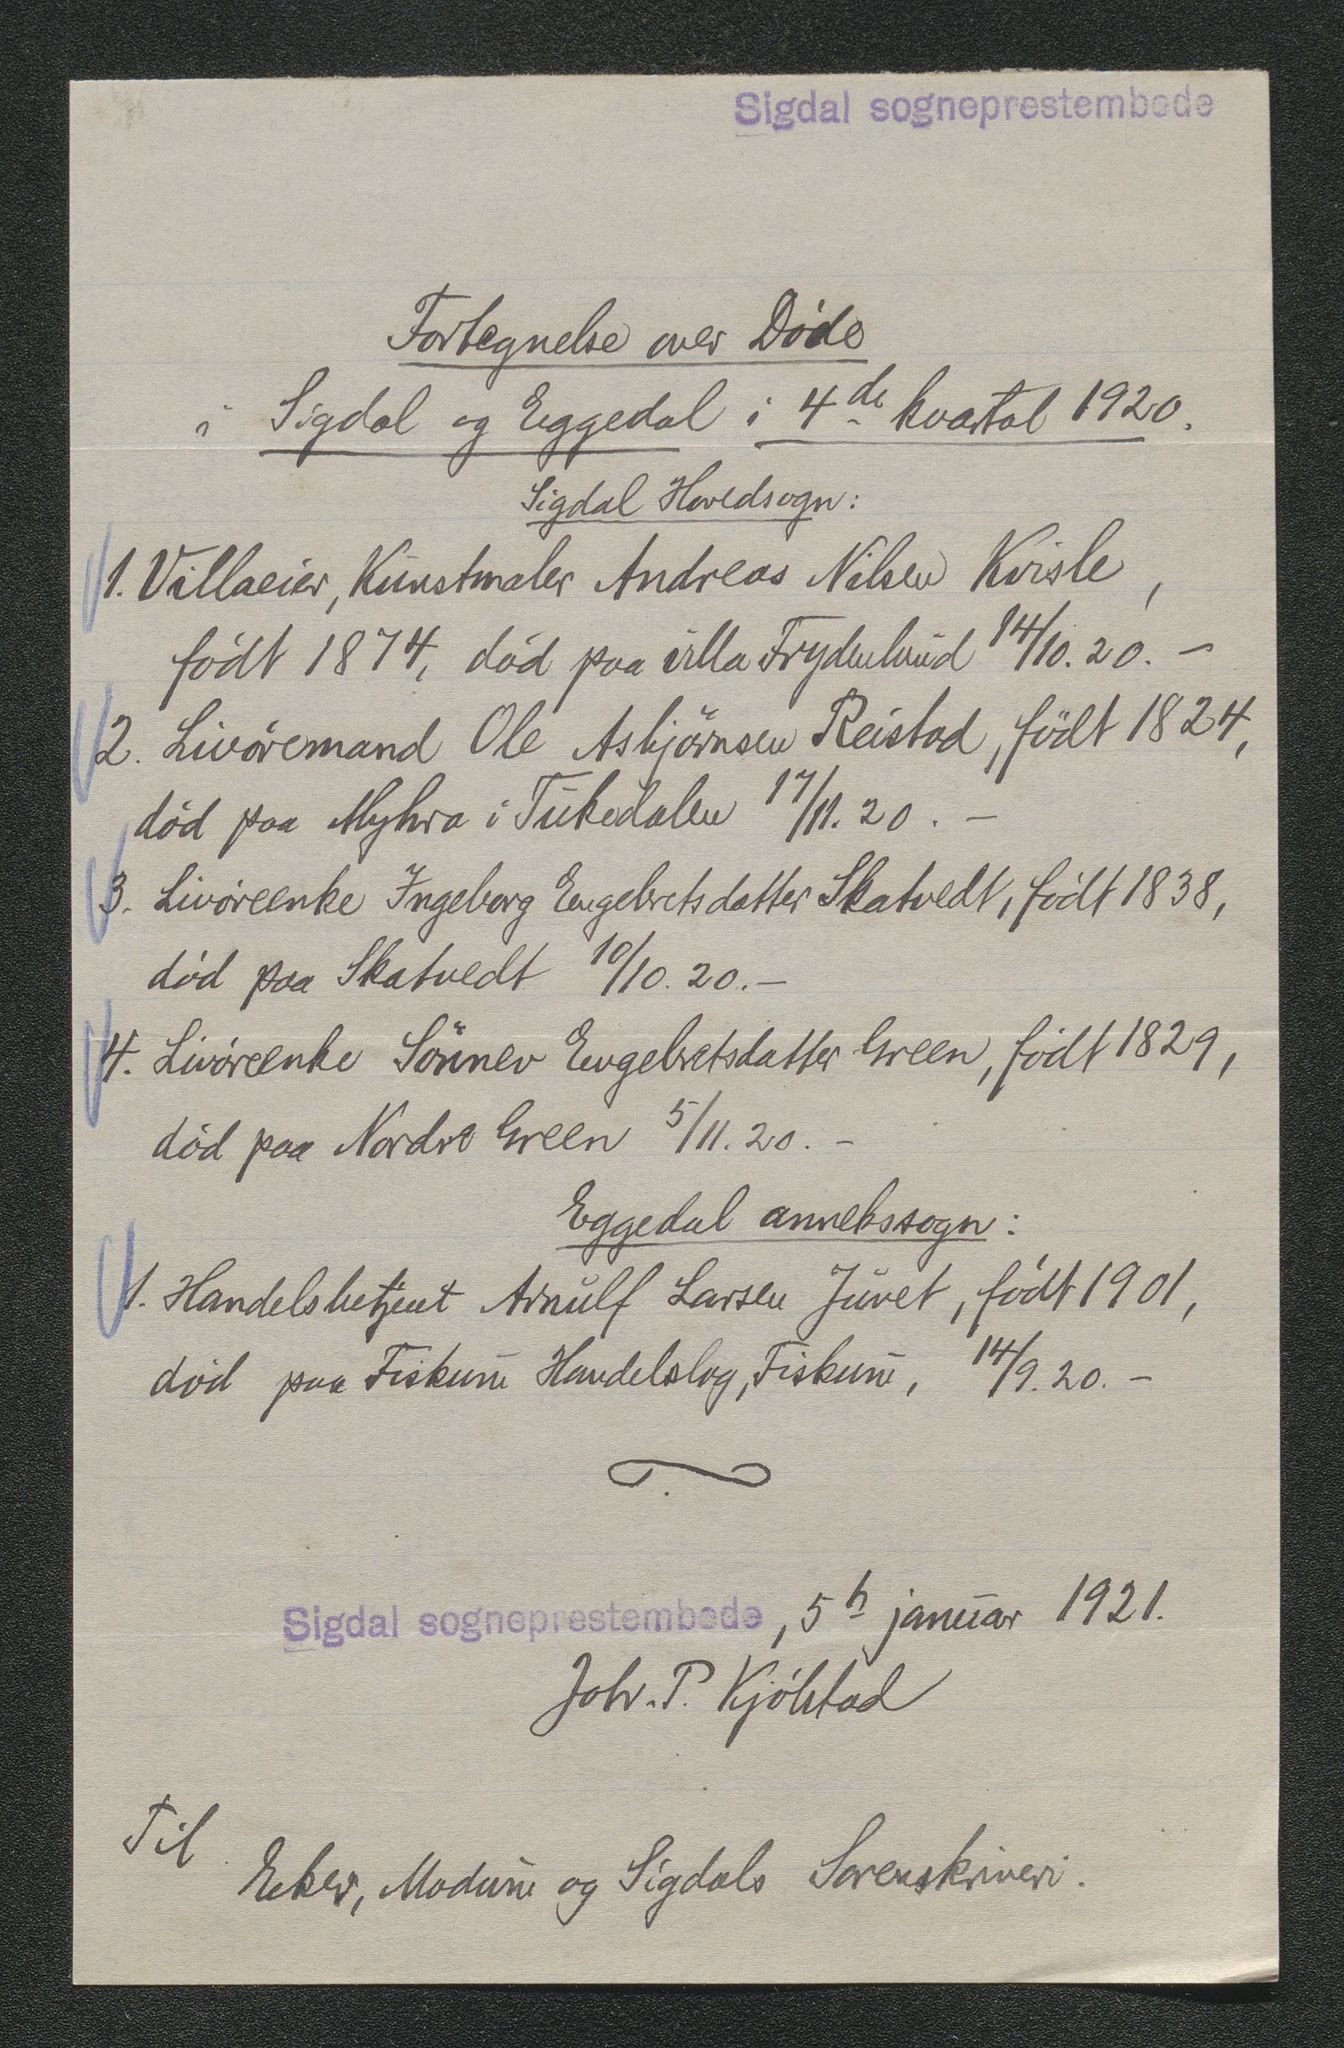 Sigdal sogneprestembede
Fortegnelse over Døde
i Sigdal og Eggedal i 4de kvartal 1920.
Sigdal Hovedsogn:
1. Villaeier, Kunstmaler Andreas Nilsen Kvisle,
født 1874, død paa villa Frydenlund 14/10.20. –
2. Livöremand Ole Asbjörnsen Reistad, födt 1824,
död paa Myhra i Tukedalen 17/11.20. –
3. Livöreenke Ingeborg Engebretsdatter Skatvedt, födt 1838,
död paa Skatvedt 10/10.20. –
4. Livöreenke Sönnev Engebretsdatter Green, födt 1829,
död paa Nordre Green 5/11.20. –
Eggedal annekssogn:
1. Handelsbetjent Arnulf Larsen Juvet, født 1901,
död paa Fiskum Handelslag, Fiskum, 14/9.20. –
Sigdal sogneprestembede, 5h januar 1921.
Joh. P. Kjölstad
Til
Eker, Modum og Sigdals Sorenskriveri.